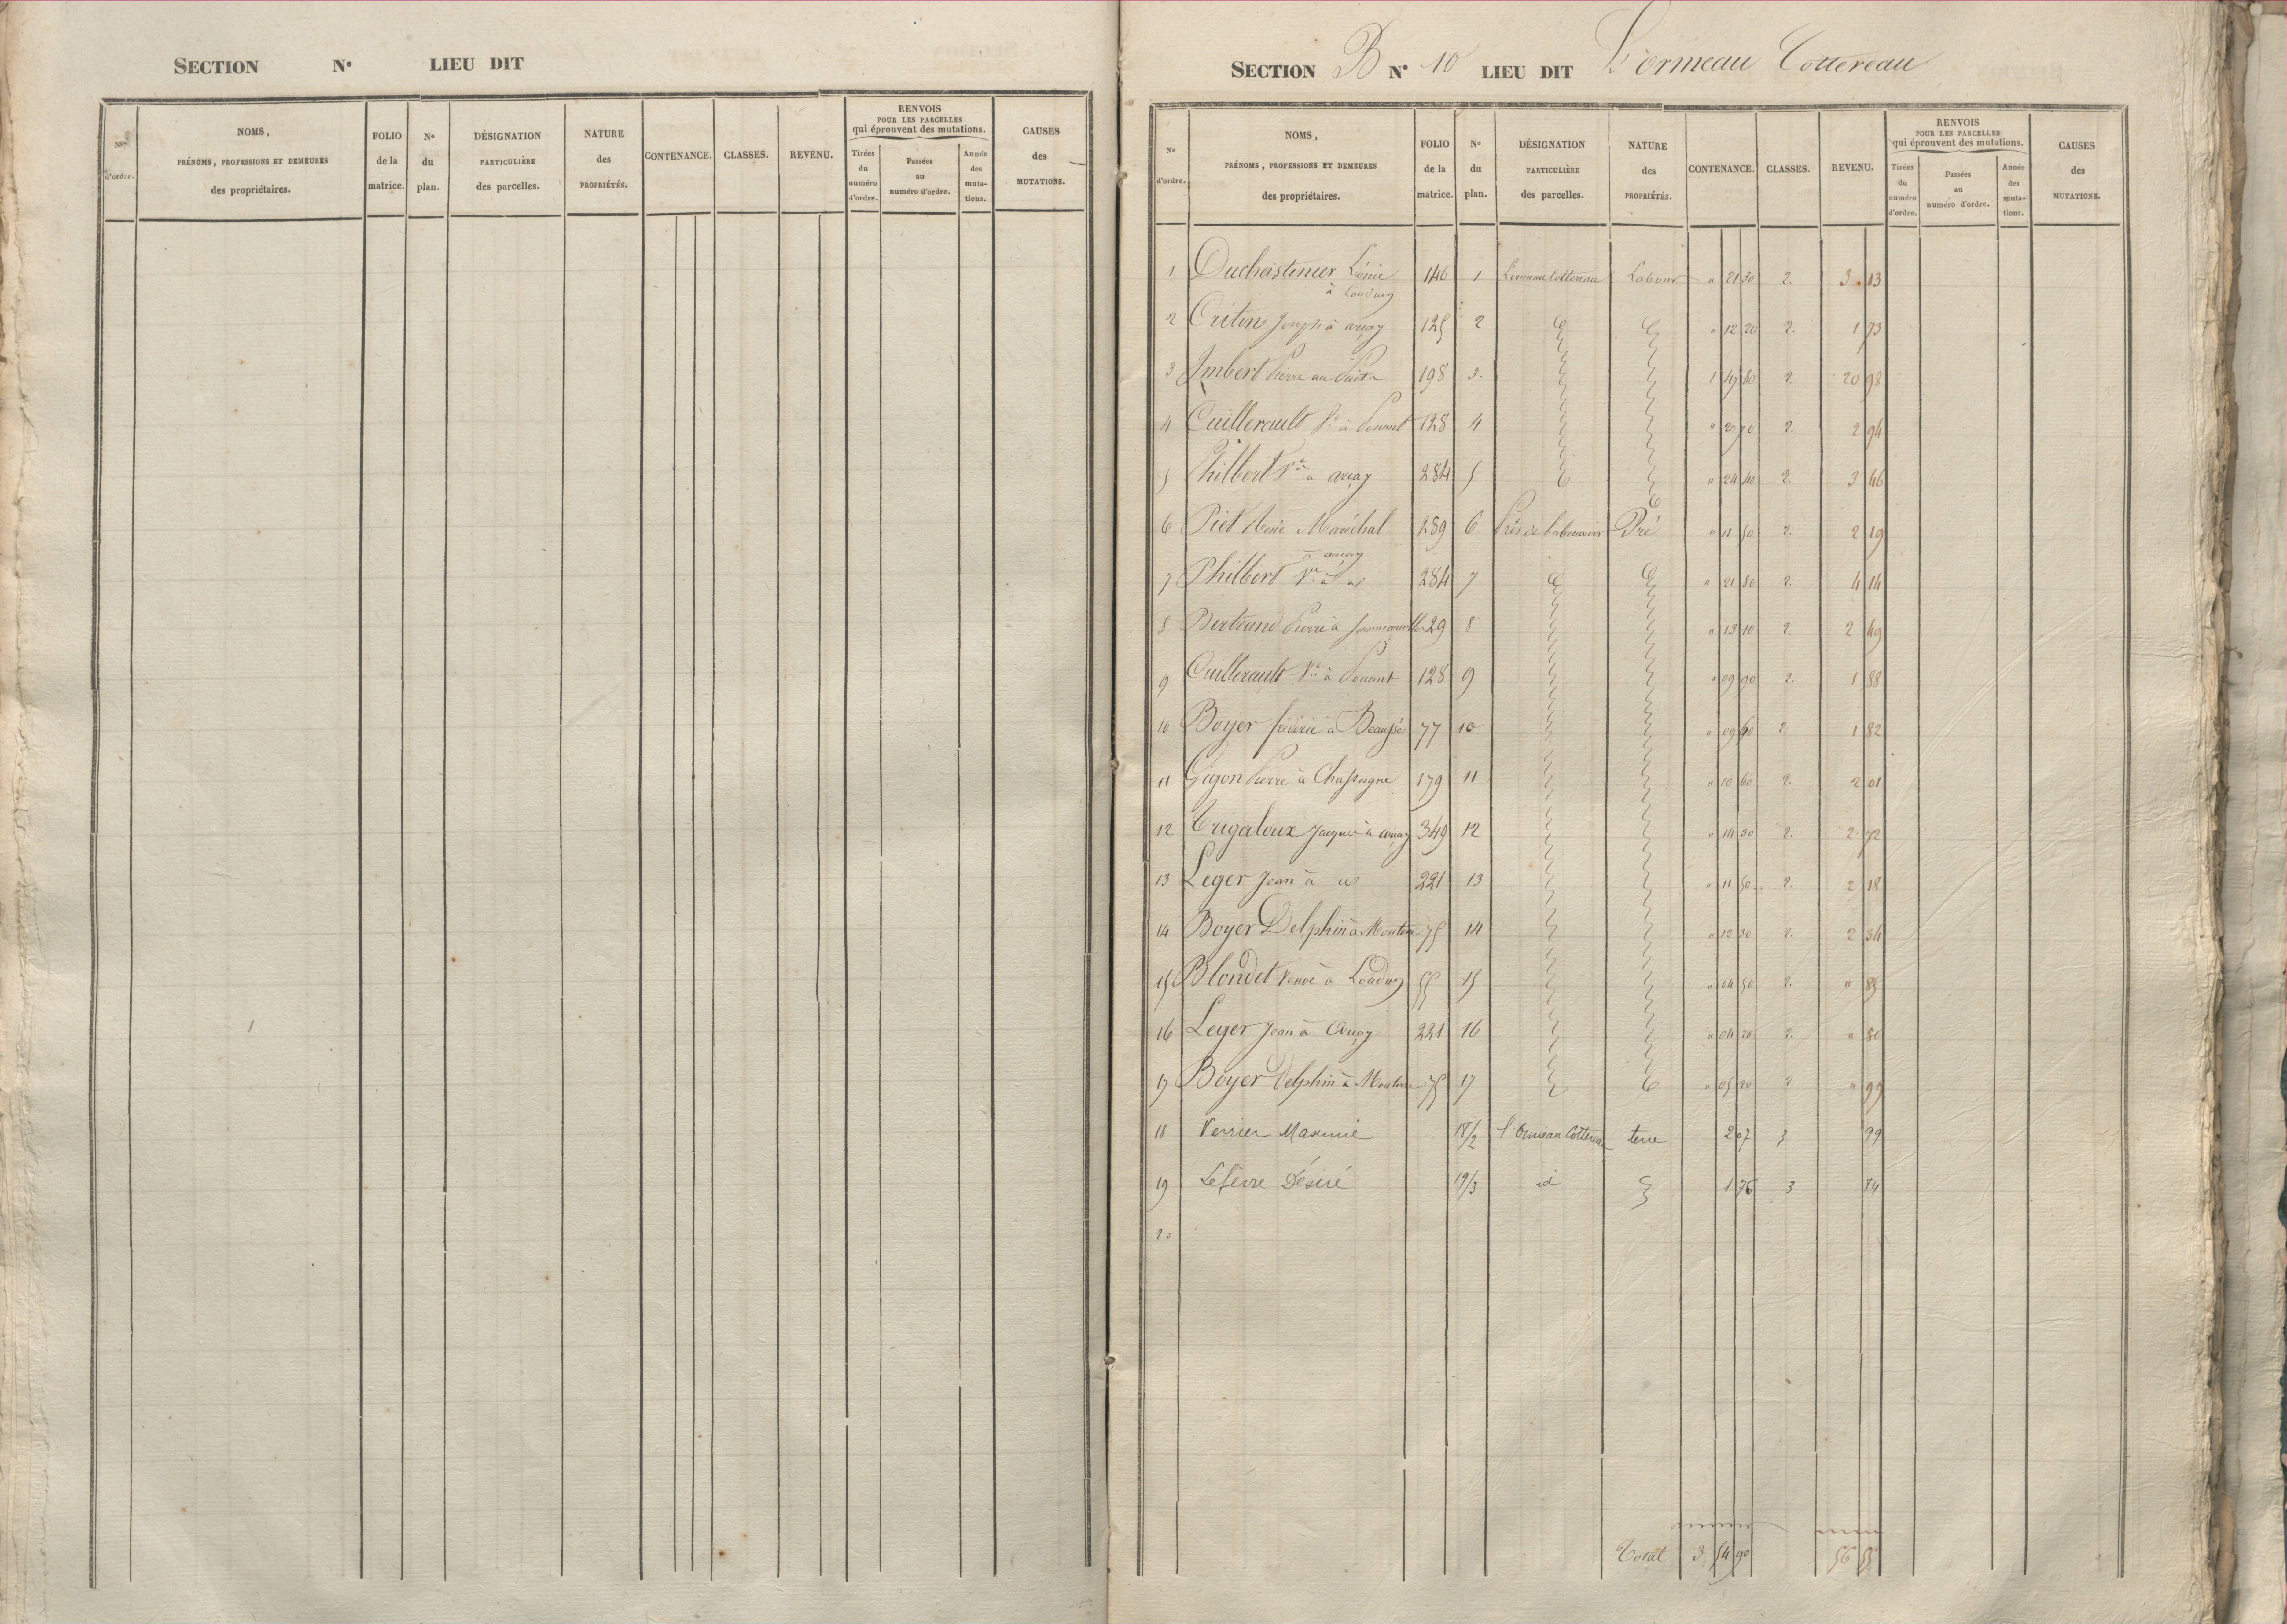 SECTION N° LIEU DIT
N°s d'ordre.
NOMS,
PRÉNOMS, PROFESSIONS ET DEMEURES
des propriétaires.
FOLIO
de la
matrice.
N°
du
plan.
DÉSIGNATION
PARTICULIÈRE
des parcelles.
NATURE
des
PROPRIÉTÉS.
CONTENANCE.
CLASSES.
REVENU.
RENVOIS
POUR LES PARCELLES
qui éprouvent des mutations.
Tirées
du
numéro
d'ordre.
Passées
au
numéro d'ordre.
Année
des
muta-
tions.
CAUSES
des
MUTATIONS.
SECTION B N° 10 LIEU DIT L'ormeau Cottereau
N°
d'ordre.
NOMS,
PRÉNOMS, PROFESSIONS ET DEMEURES
des propriétaires.
FOLIO
de la
matrice.
N°
du
plan.
DÉSIGNATION
PARTICULIÈRE
des parcelles.
NATURE
des
PROPRIÉTÉS.
CONTENANCE.
CLASSES.
REVENU.
RENVOIS
POUR LES PARCELLES
qui éprouvent des mutations.
Tirées
du
numéro
d'ordre.
Passées
au
numéro d'ordre.
Année
des
muta-
tions.
CAUSES
des
MUTATIONS.
1 146 1 L'ormeau Cottereau Labour " 21 30 2. 3 13
à Loudun
2 Criton Joseph à arçay 125 2 " 12 20 2. 1 73
3 Imbert Pierre au 198 3. 1 47 80 2. 20 98
4 Cuillerault Ve à Pouant 128 4 " 20 70 2. 2 94
5 Philbert Ve à arçay 284 5 " 24 40 2. 3 46
6 Piet René Maréchal 289 6 Près de l'abreuvoir Pré " 11 50 2. 2 19
à arçay
7 Philbert Ve à id 284 7 " 21 80 2. 4 14
8 Bertrand Pierre à 29 8 " 13 10 2. 2 49
9 Cuillerault Ve à Pouant 128 9 " 09 90 2. 1 88
10 Boyer fréderic à Beaussé 77 10 " 09 60 2. 1 82
11 Gigon Pierre à Chassigne 179 11 " 10 60 2. 2 01
12 Trigaloux Jacques à arçay 349 12 " 14 30 2. 2 72
13 Leger Jean à id 221 13 " 11 50 2. 2 18
14 Boyer Delphin à Mouton 75 14 " 12 30 2. 2 34
15 Blondet Veuve à Loudun 55 15 " 04 50 2. " 85
16 Leger Jean à Arçay 221 16 " 04 20 2. " 80
17 Boyer Delphin à Mouton 75 17 " 05 20 2. " 99
18 Verrier Maxime 18/2 l'Ormeau Cottereau terre 2 07 3 99
19 Lefèvre Désiré 19/3 id 1 76 3 84
20
Total 3 54 90 56 55